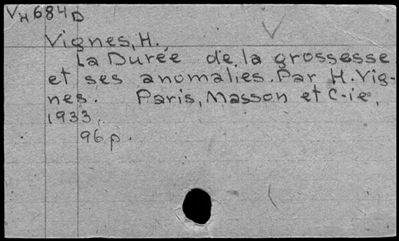 VH684D
Vignes, H.,
La Durée de la grossesse
et ses anomalies. Par H. Vig-
nes. Paris, Masson et C-ie,
1933.
96 p.